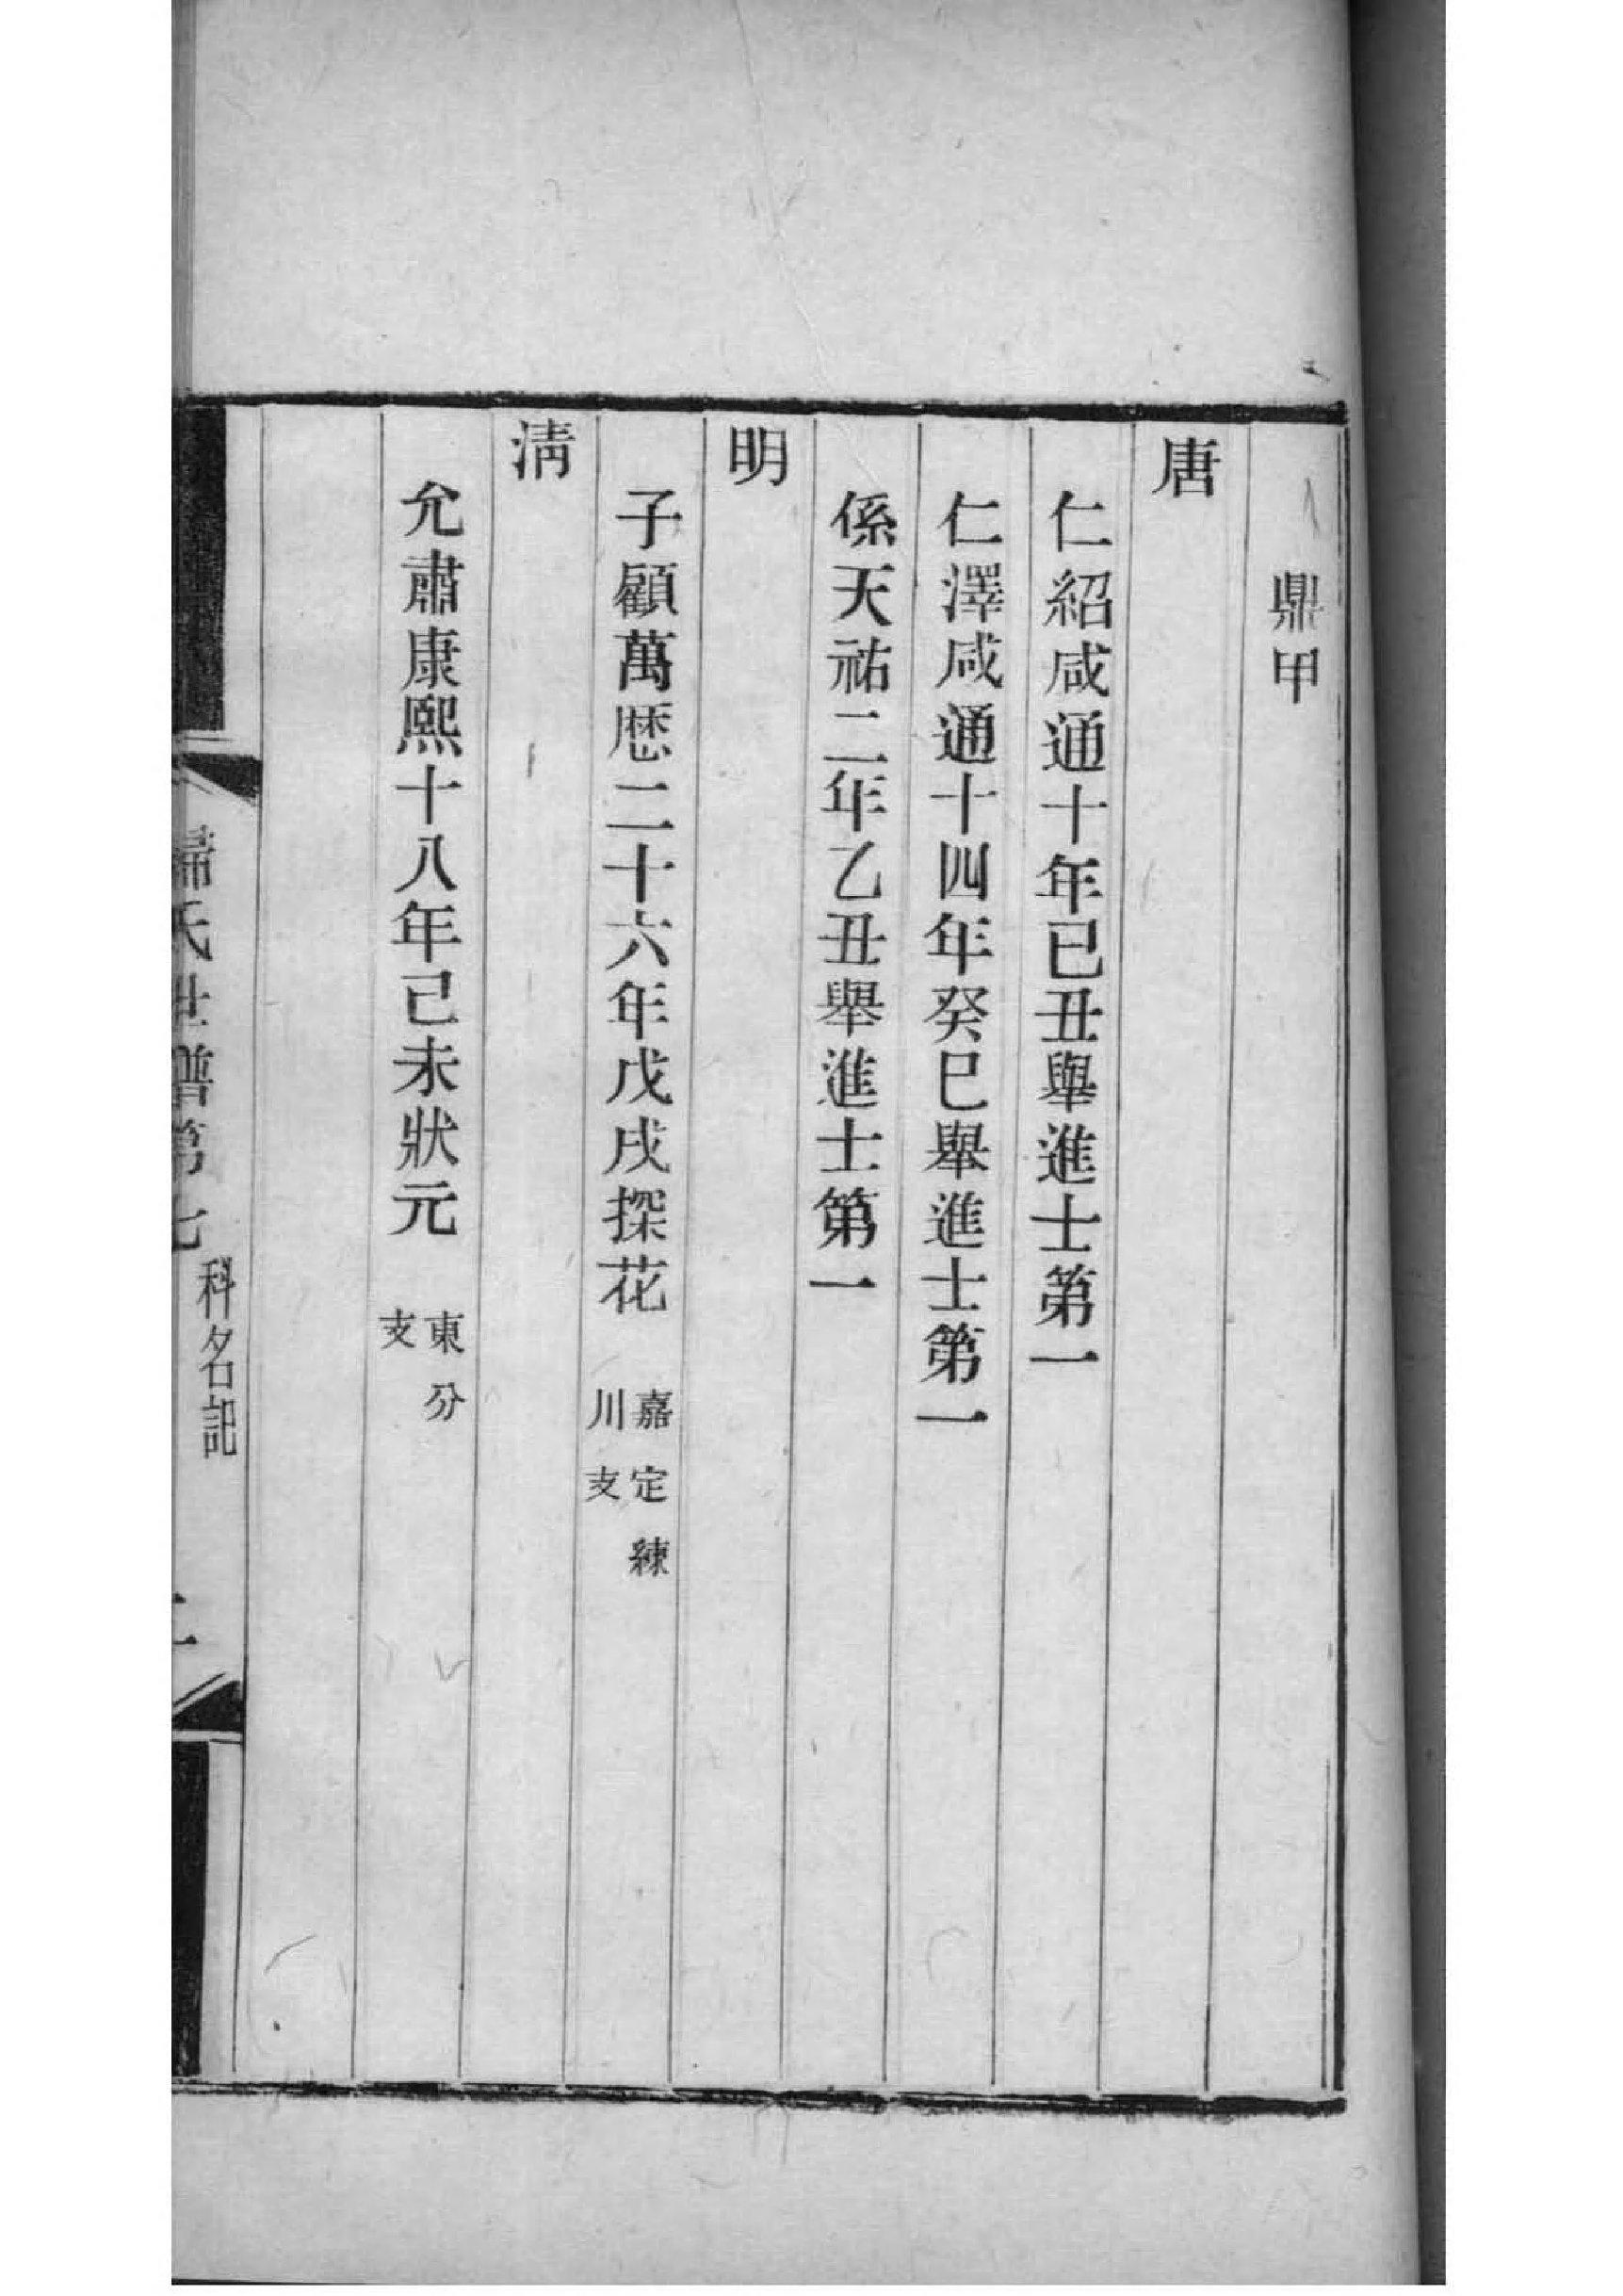 鼎甲
唐
仁紹咸通十年已丑舉進士第一
仁澤咸通十四年癸巳舉進士第一
係天祐二年乙丑舉進士第一
明
子顧萬歷二十六年戊戌探花 嘉定練川支
清
允肅康熙十八年己未狀元 東分支
歸氏世譜第七 科名記 二